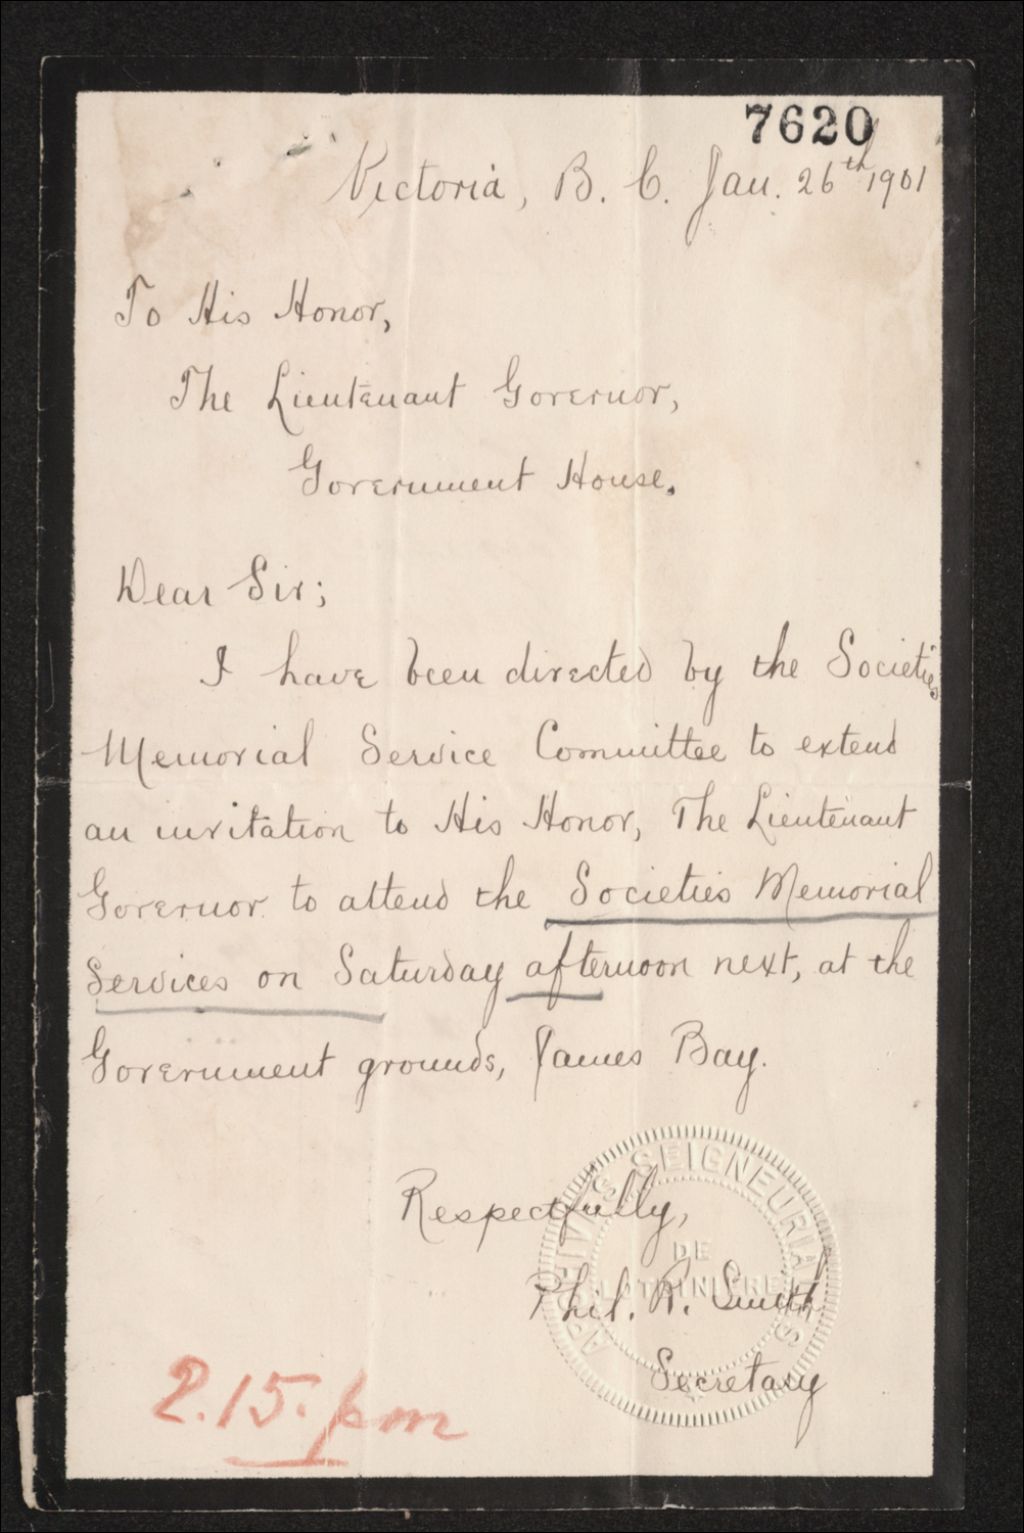 7620
Victoria, B. C. Jan. 26th 1901
To His Honor,
The Lieutenant Governor,
Government House.
Dear Sir;
I have been directed by the Societies
Memorial Service Committee to extend
an invitation to His Honor, The Lieutenant
Governor to attend the Societies Memorial
Services on Saturday afternoon next, at the
Government grounds, James Bay.
Respectfully,
Phil. R. Smith
Secretary
ARCHIVES SEIGNEURIALES
DE
LOTBINIERE
2.15. pm